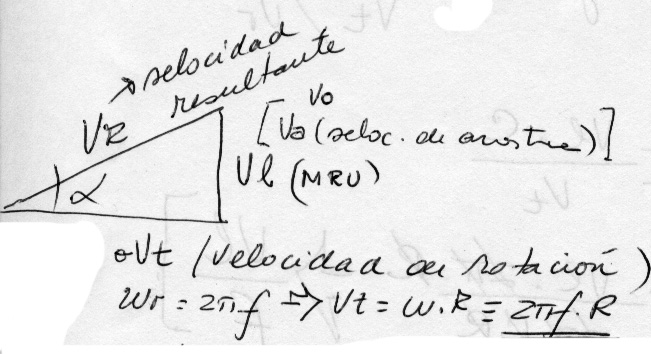 velocidad
resultante
VR
Vo
[Va (veloc. de arrastre)]
Vl (MRU)
α
Vt (velocidad de rotación)
Wr = 2πf ⇒ Vt = ω.R ≡ 2πf.R